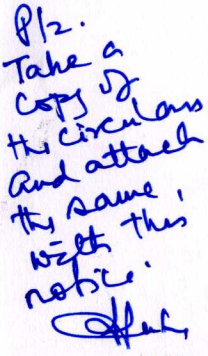 Plz.
Take a
copy of
the circulars
and attach
the same,
with this
notice.